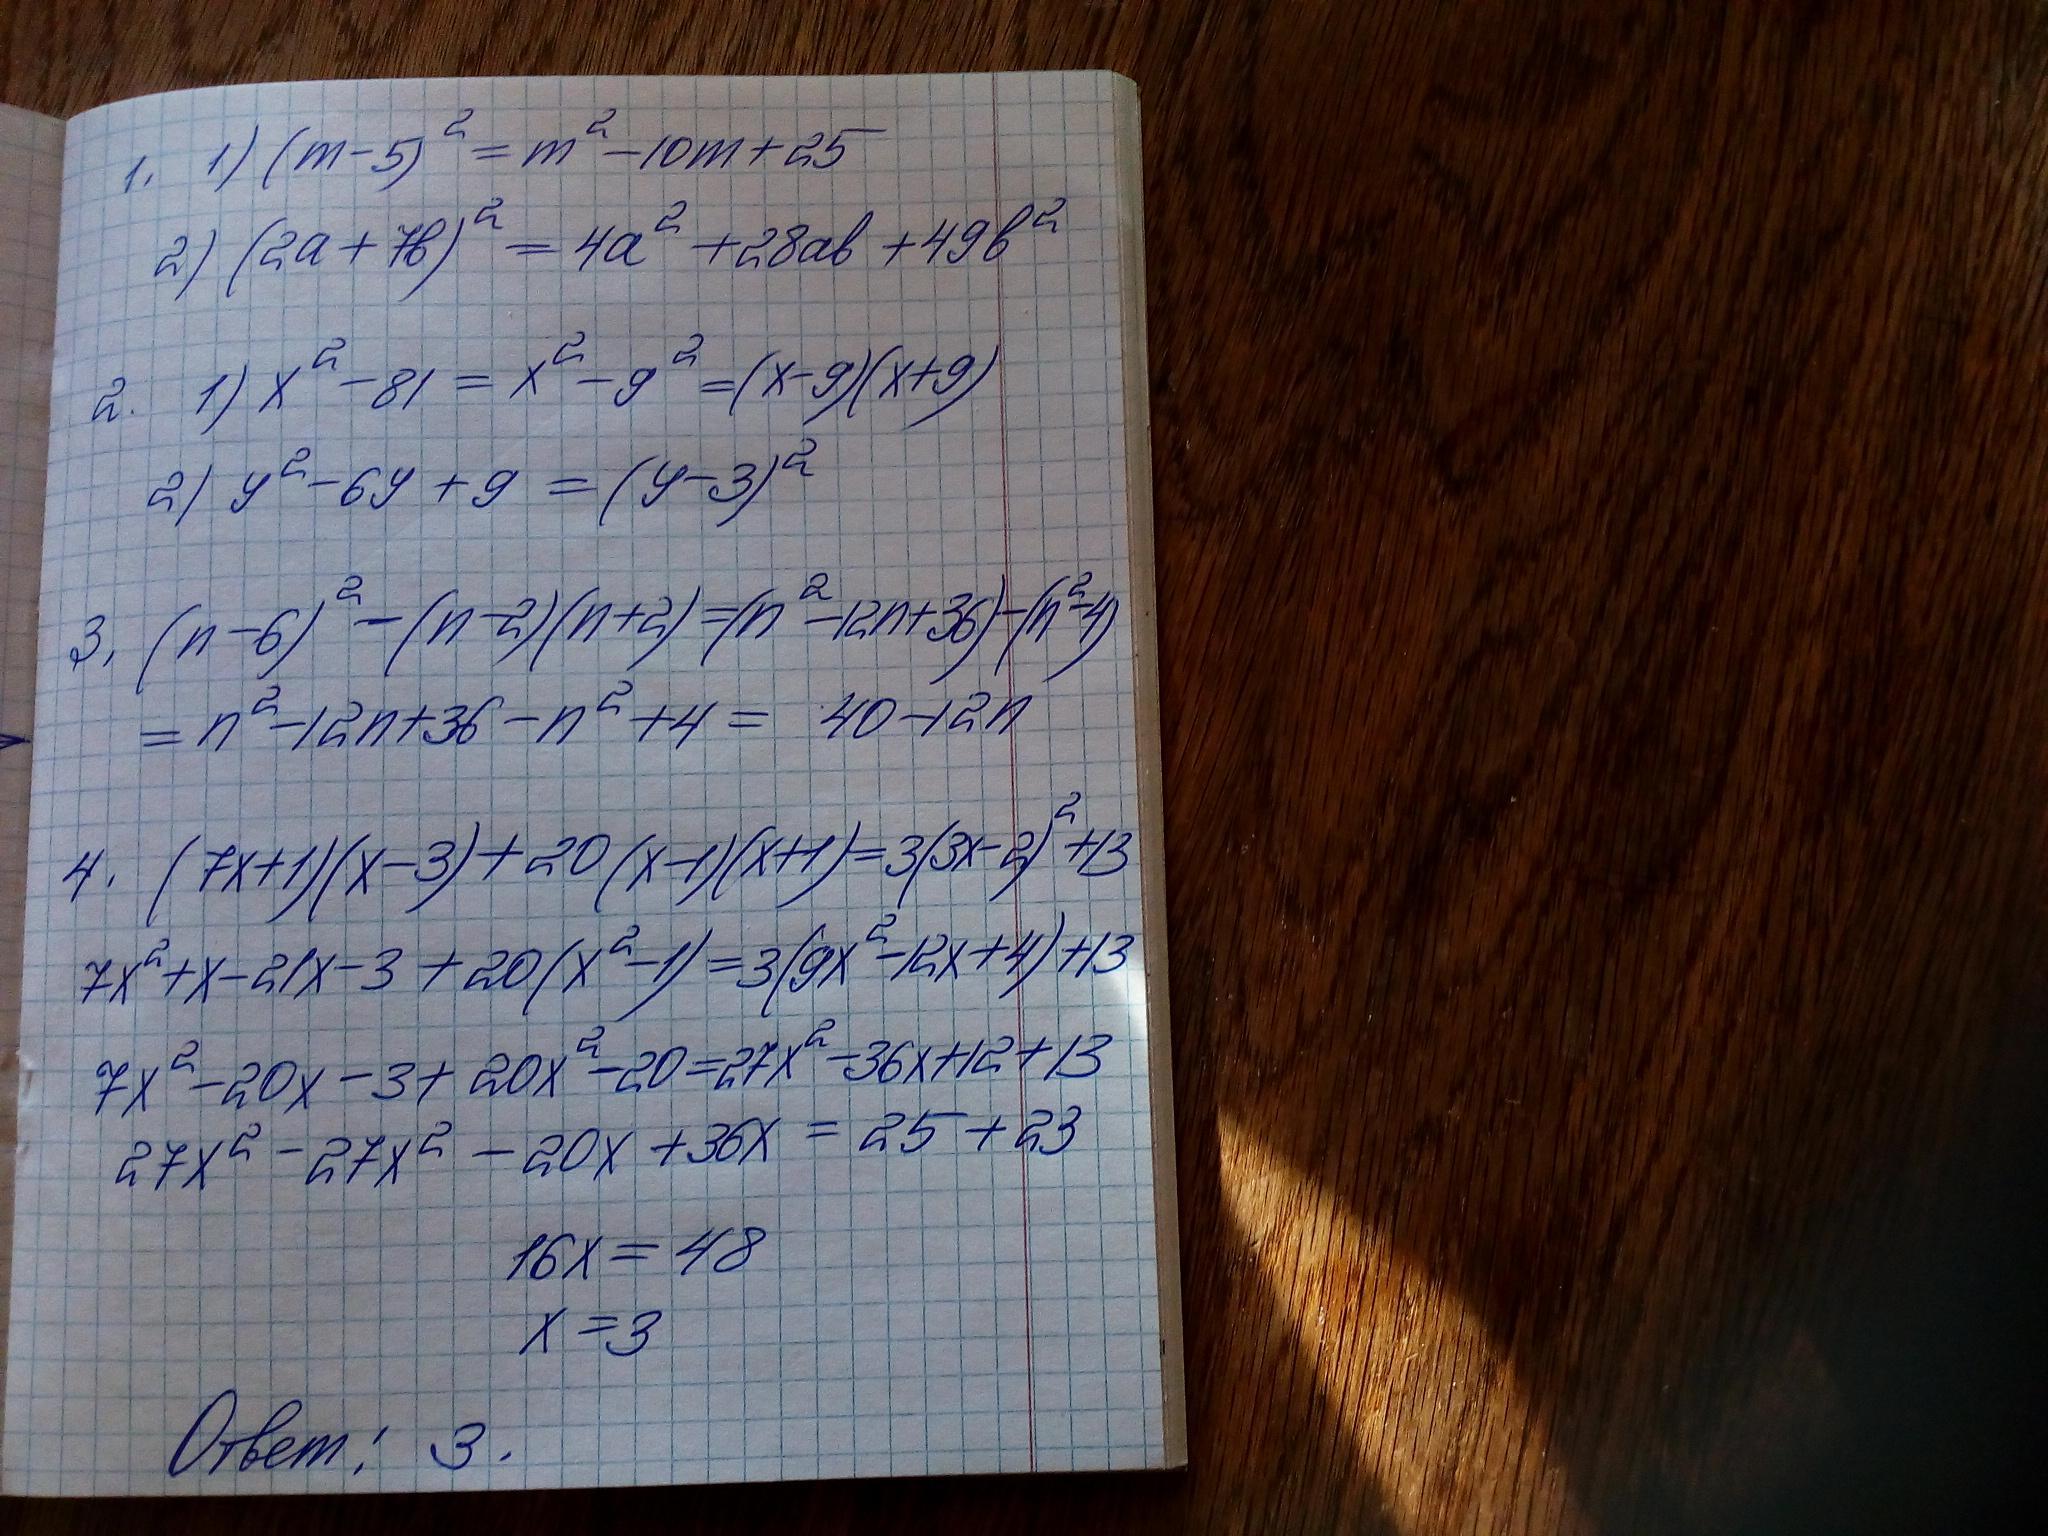 1. 1) (m-5)² = m² - 10m + 25
2) (2a + 7b)² = 4a² + 28ab + 49b²
2. 1) x² - 81 = x² - 9² = (x-9)(x+9)
2) y² - 6y + 9 = (y-3)²
3. (n-6)² - (n-2)(n+2) = (n² - 12n + 36) - (n² - 4)
= n² - 12n + 36 - n² + 4 = 40 - 12n
4. (7x+1)(x-3) + 20(x-1)(x+1) = 3(3x-2)² + 13
7x² + x - 21x - 3 + 20(x² - 1) = 3(9x² - 12x + 4) + 13
7x² - 20x - 3 + 20x² - 20 = 27x² - 36x + 12 + 13
27x² - 27x² - 20x + 36x = 25 + 23
16x = 48
x = 3
Ответ: 3.